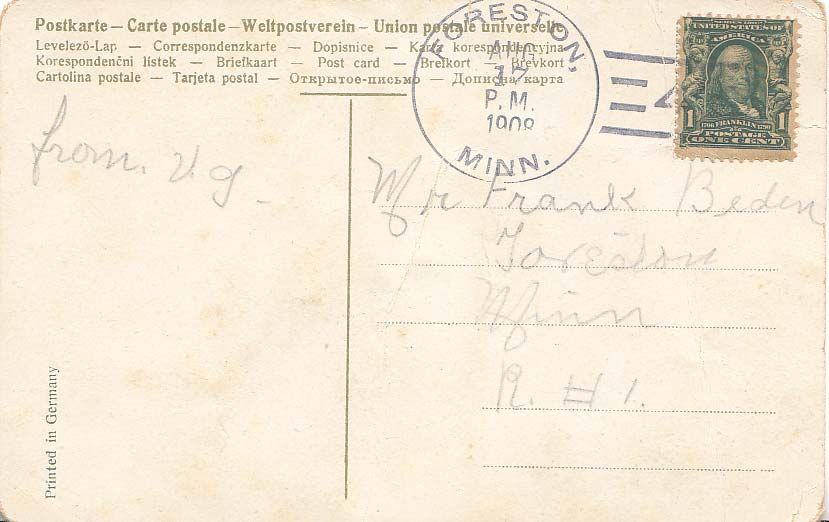 Postkarte – Carte postale – Weltpostverein – Union postale universelle
Levelező-Lap — Correspondenzkarte — Dopisnice — Karta korespondencyjna
Korespondenční lístek — Briefkaart — Post card — Brefkort — Brevkort
Cartolina postale — Tarjeta postal — Открытое-письмо — Дописна карта
FORESTON,
17
P.M.
1908
MINN.
SERIES 1902
UNITED STATES OF
AMERICA
1 1706 FRANKLIN 1790 1
POSTAGE
ONE CENT
from. V. G
Mr Frank Beden
Foreston
Minn
R. # 1.
Printed in Germany